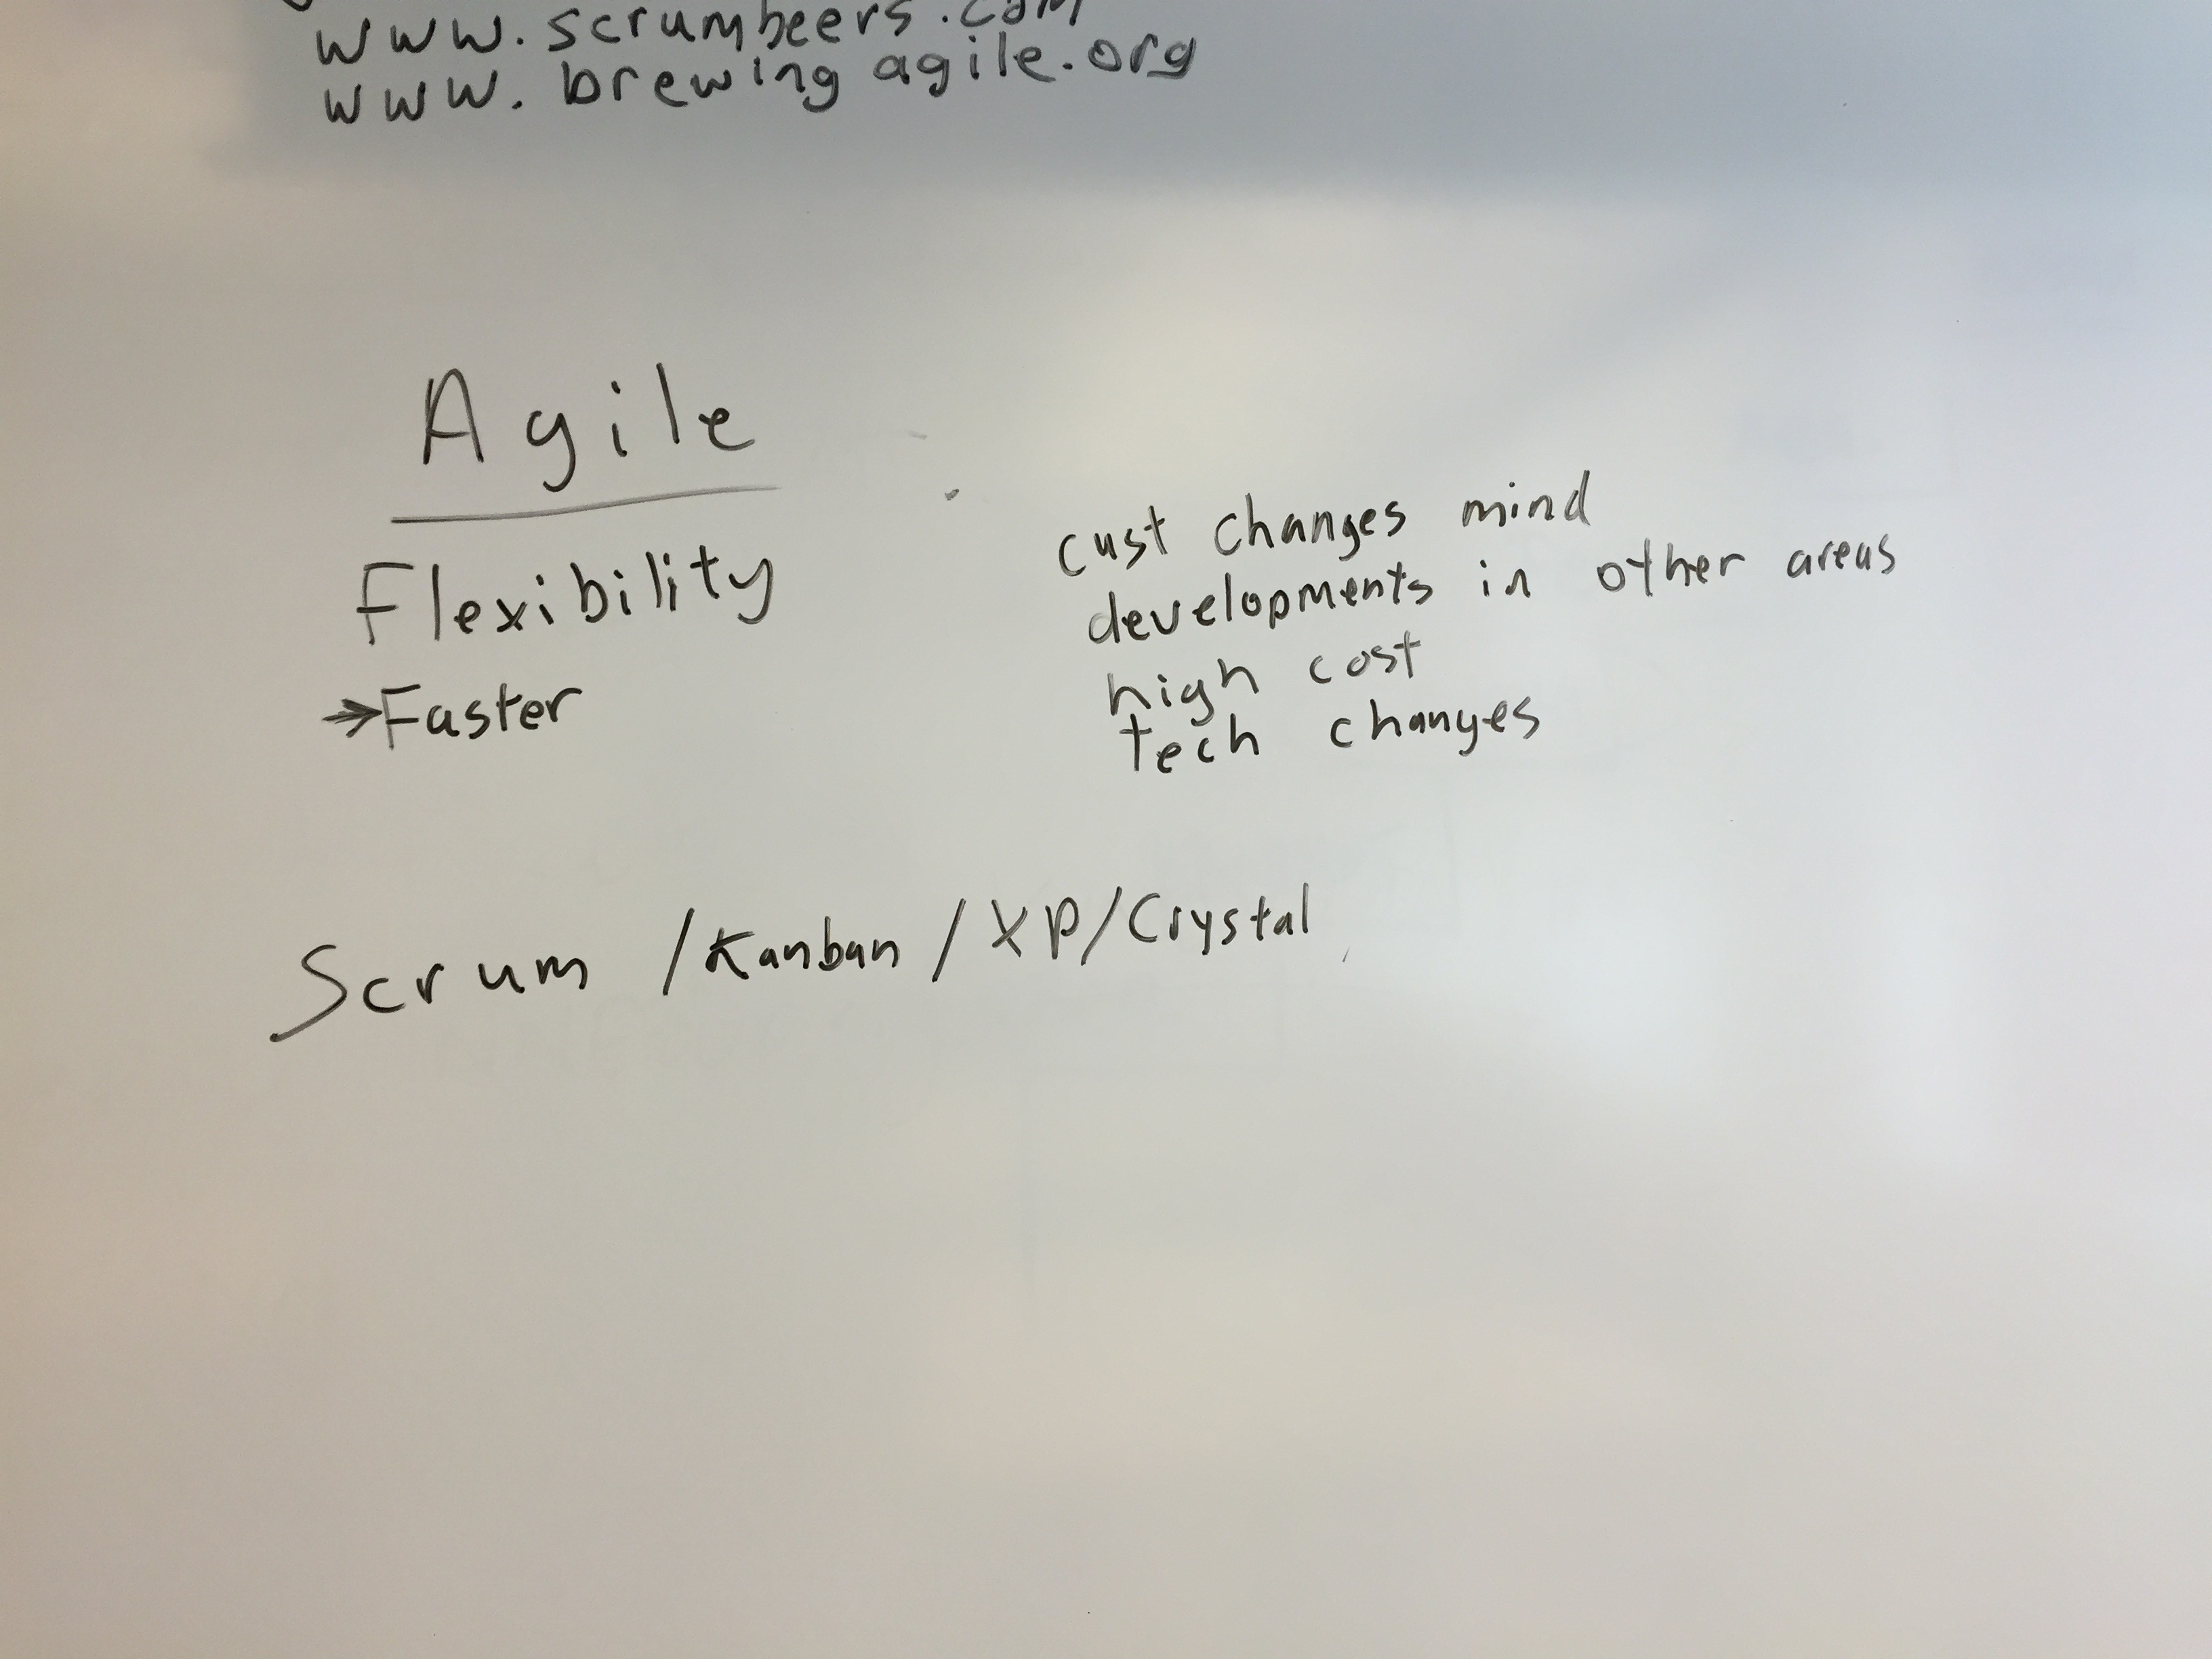 www.scrumbeers.com
www.brewingagile.org
Agile
Flexibility
→Faster
cust changes mind
developments in other areas
high cost
tech changes
Scrum / Kanban / XP / Crystal